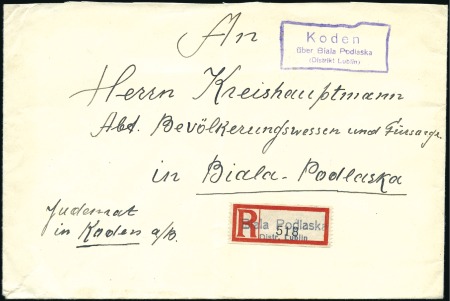 An
Koden
über Biala Podlaska
(Distrikt Lublin)
Herrn Kreishauptmann
Abt. Bevölkerungswesen und Fürsorge
in Biala-Podlaska
Judenrat
in Koden a/B.
R
Biala Podlaska
Distr. Lublin
518